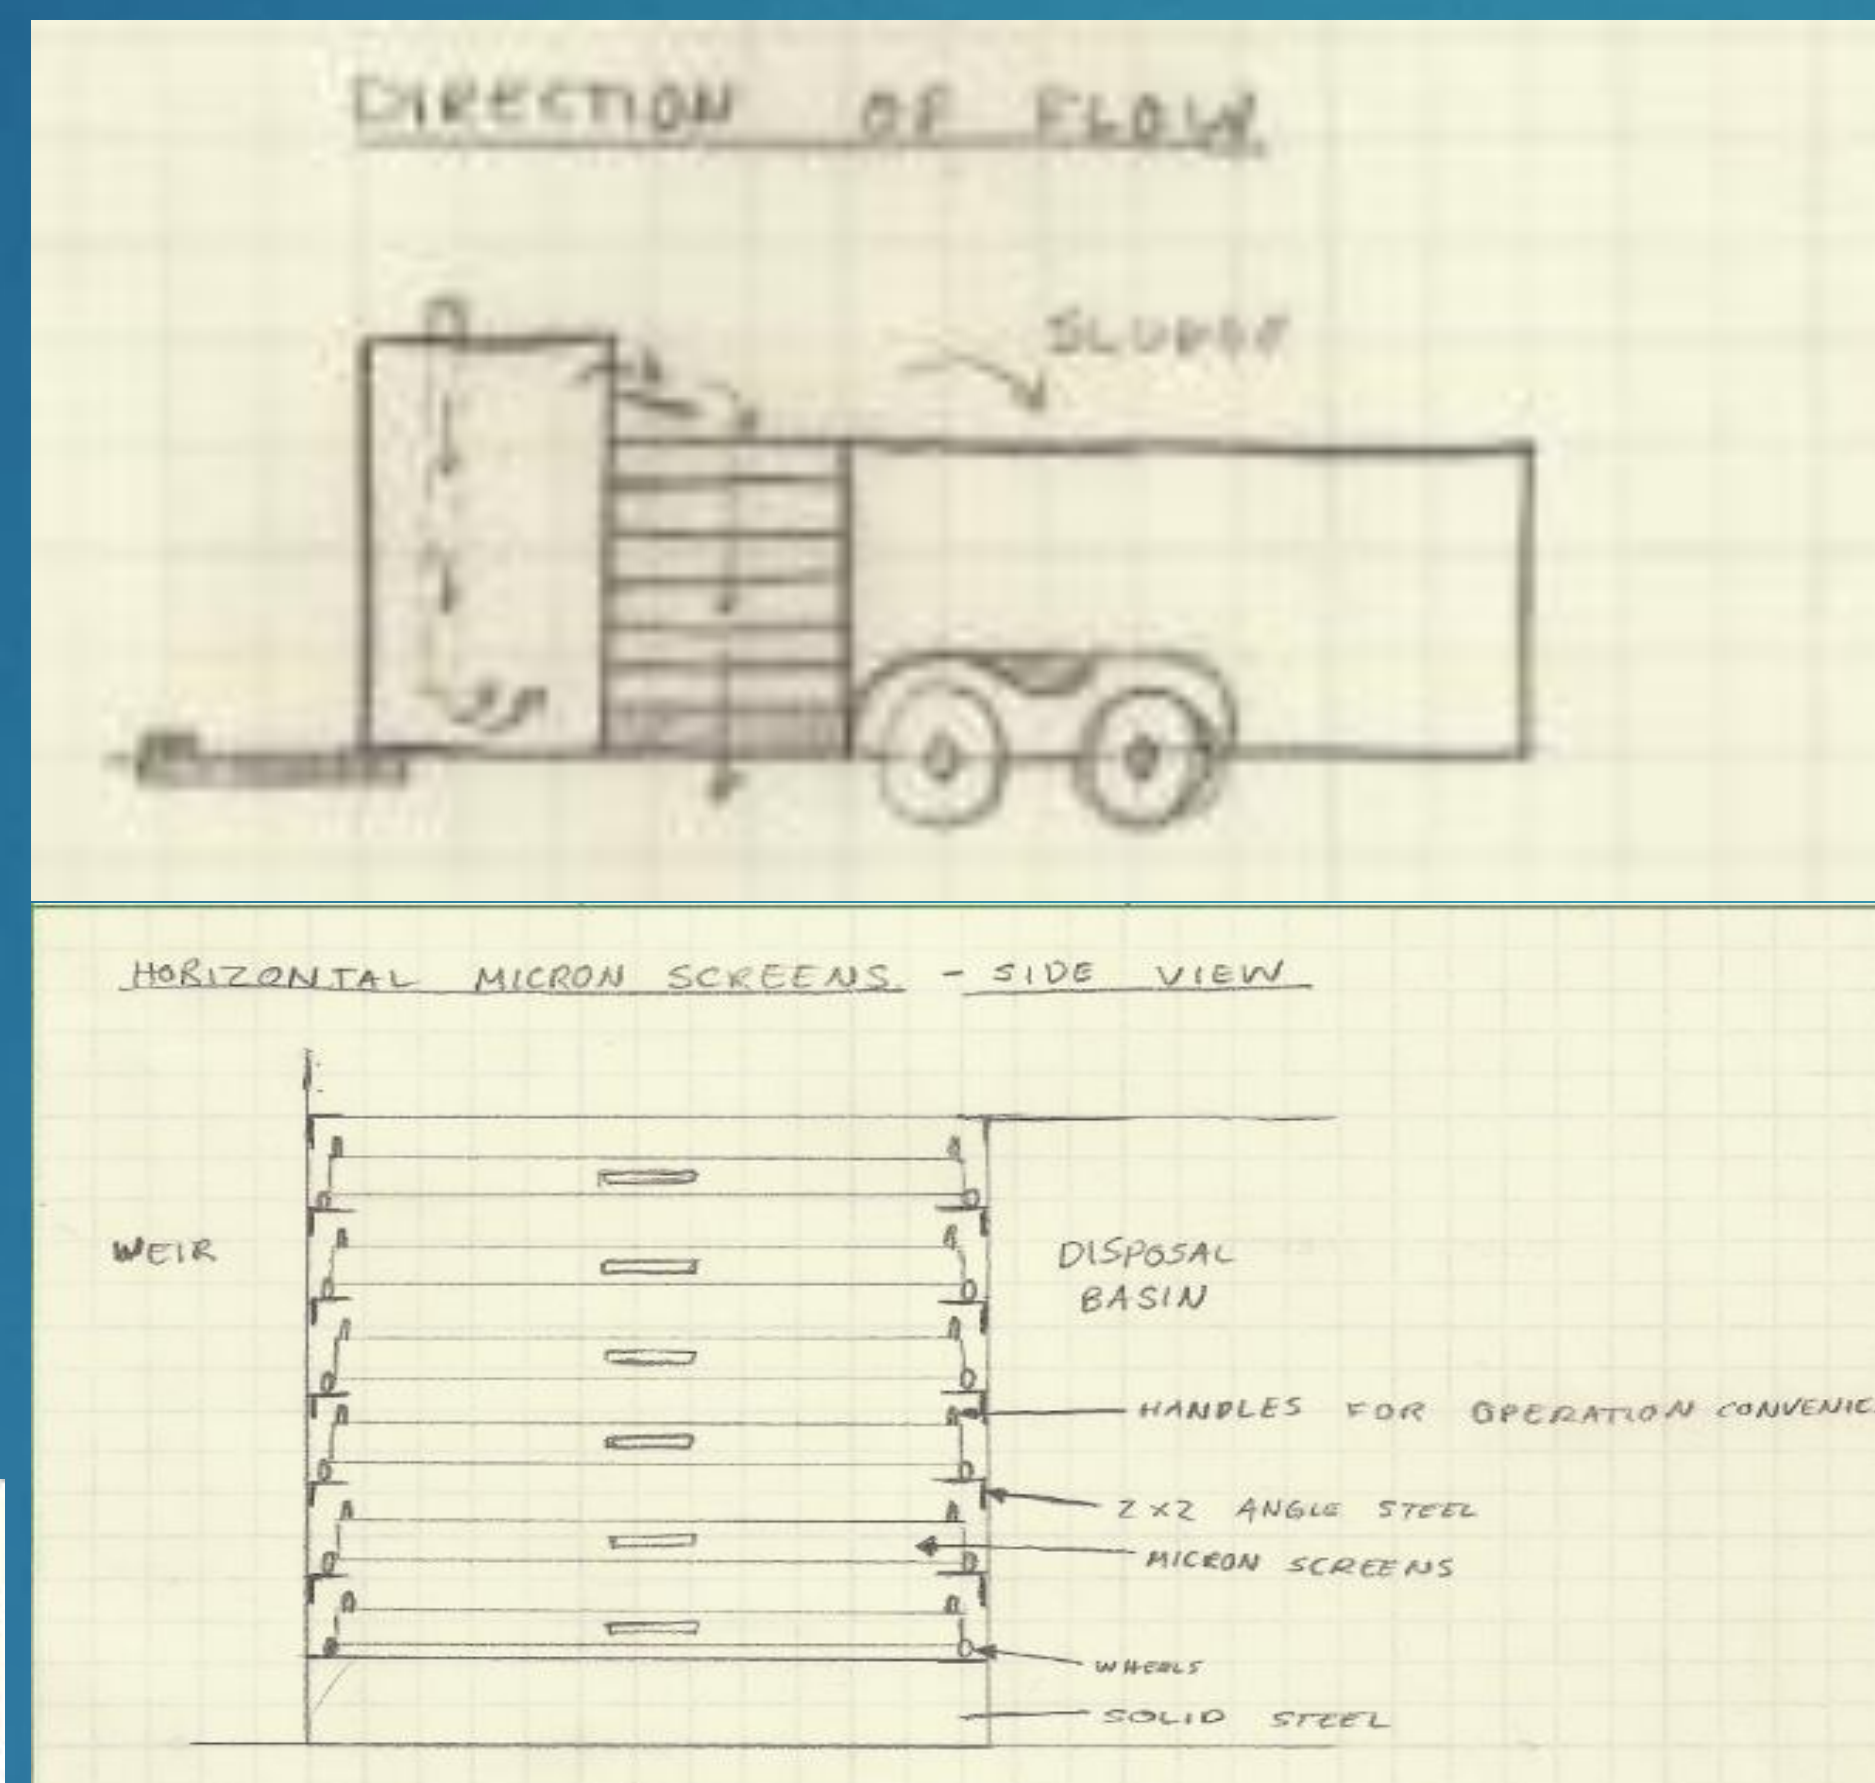 DIRECTION OF FLOW
SLUDGE
HORIZONTAL MICRON SCREENS - SIDE VIEW
WEIR
DISPOSAL
BASIN
HANDLES FOR OPERATION CONVENIE
2x2 ANGLE STEEL
MICRON SCREENS
WHEELS
SOLID STEEL